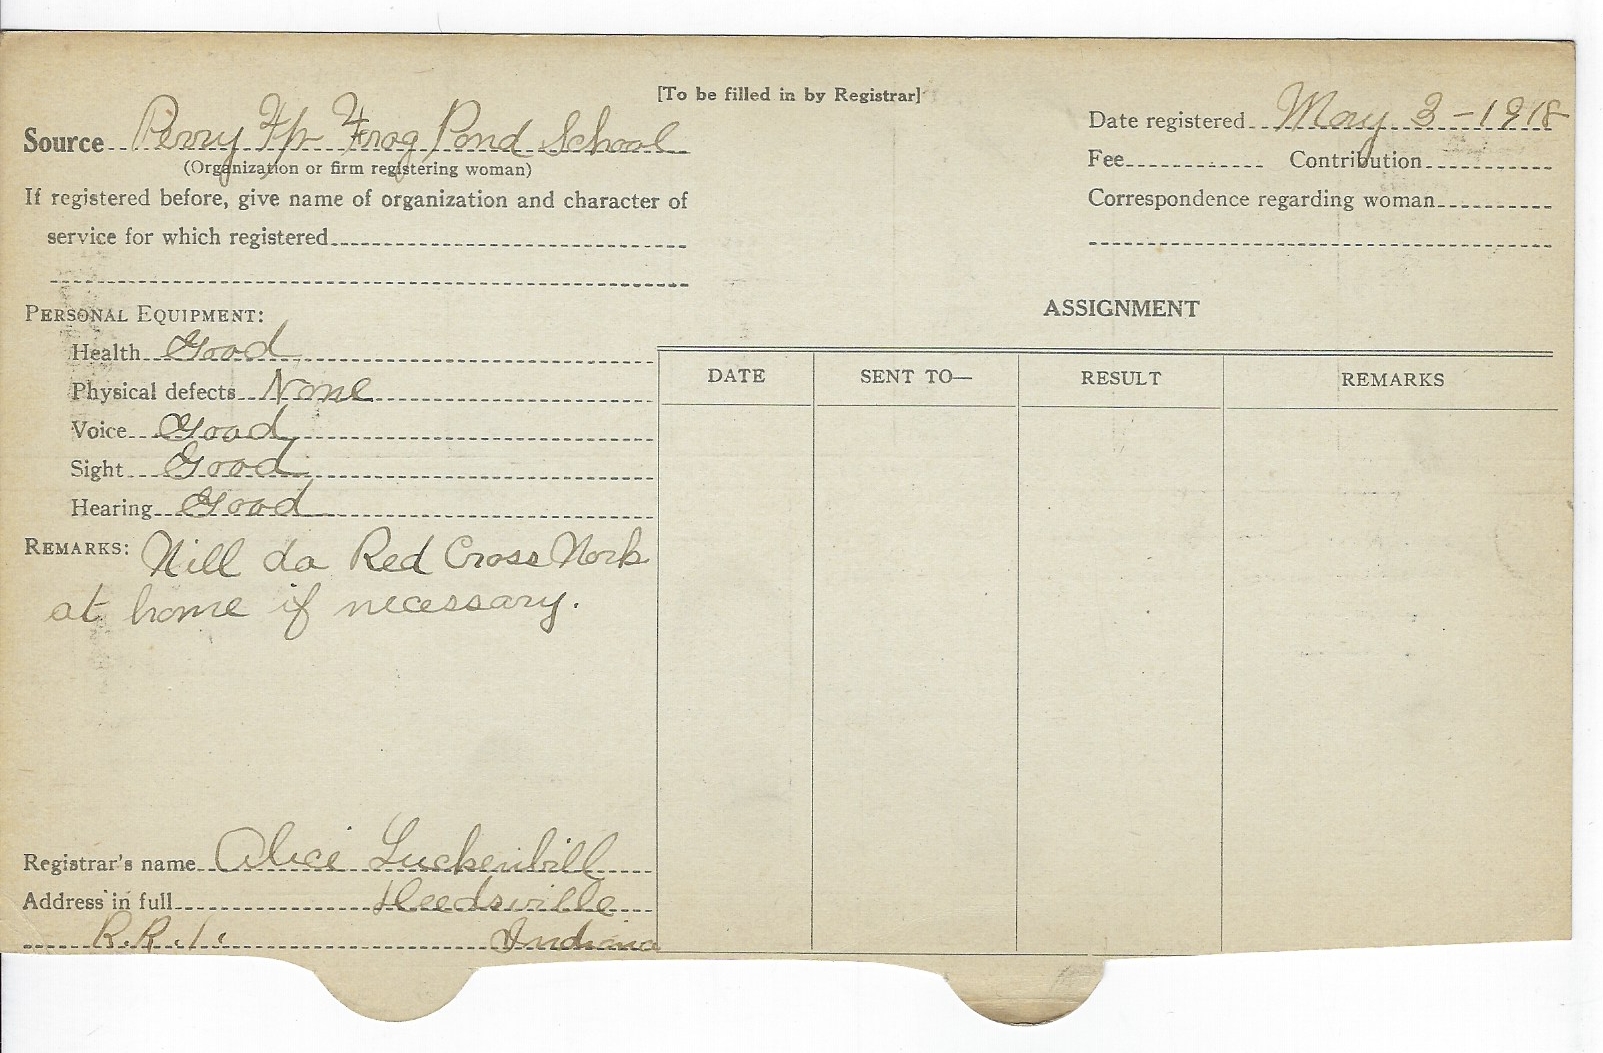 [To be filled in by Registrar]
Source Perry Tp Frog Pond School
(Organization or firm registering woman)
If registered before, give name of organization and character of
service for which registered
Date registered May 3 - 1918
Fee Contribution
Correspondence regarding woman
PERSONAL EQUIPMENT:
Health Good
Physical defects None
Voice Good
Sight Good
Hearing Good
REMARKS: Will do Red Cross Work
at home if necessary.
Registrar's name Alice Luckenbill
Address in full Heedsville
R.R. 1. Indiana
ASSIGNMENT
DATE SENT TO— RESULT REMARKS